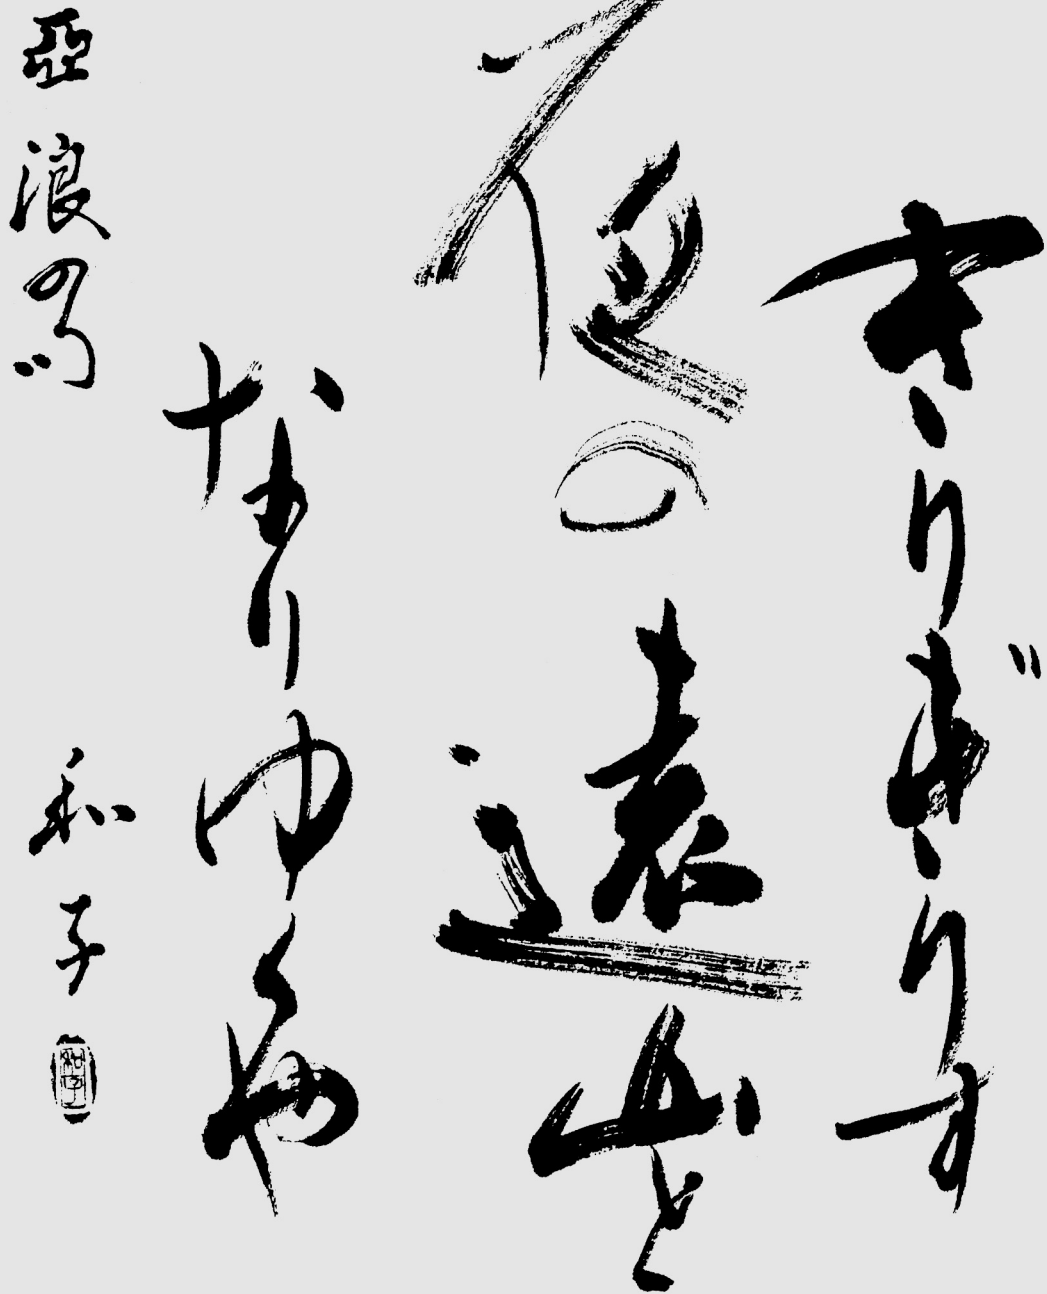 きりぎりす
夜の遠山と
なりゆくや
亞浪の句
和子
和子